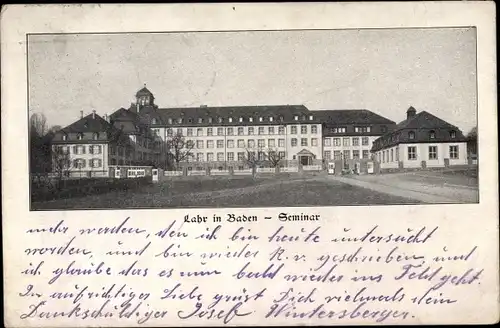 Lahr in Baden – Seminar
mehr werden, den ich bin heute untersucht
worden, und bin wieder k. v. geschrieben, und
ich glaube das es nun bald wieder ins Feld geht.
In aufrichtiger Liebe grüst Dich vielmals dein
Dankschuldiger Josef Wintersberger.